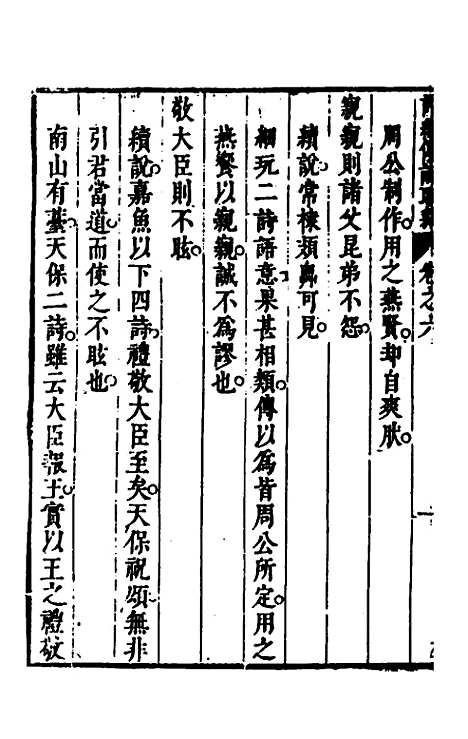 卷之六
周公制作用之燕賢却自爽肰
親親則諸父昆弟不怨
續說常棣頍弁可見
細玩二詩語意果甚相類傳以爲皆周公所定用之
燕饗以親親誠不爲謬也
敬大臣則不眩
續說嘉魚以下四詩禮敬大臣至矣天保祝頌無非
引君當道而使之不眩也
南山有臺天保二詩雖云大臣報王實以王之禮敬